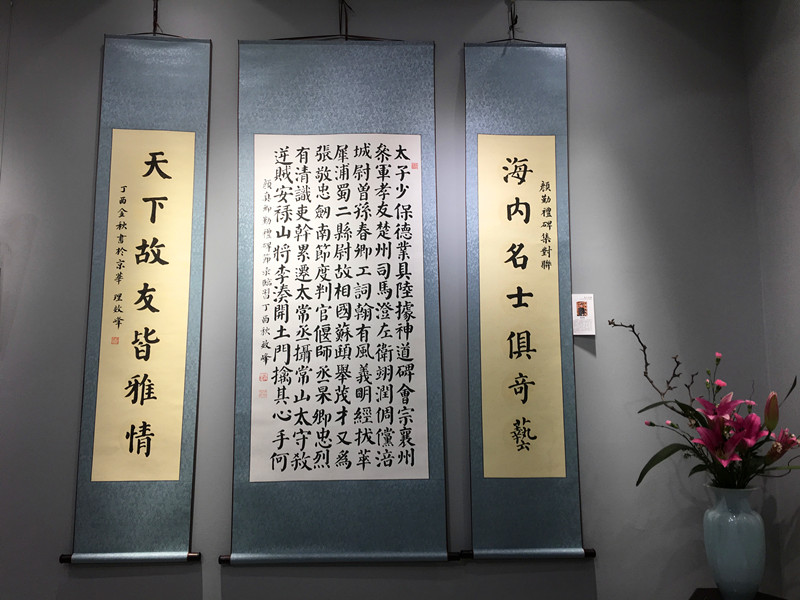 顏勤禮碑集對聯
海内名士俱奇藝
太子少保德業具陸據神道碑會宗襄州
叅軍孝友楚州司馬澄左衛翊潤倜儻涪
城尉曾孫春卿工詞翰有風義明經拔萃
犀浦蜀二縣尉故相國蘇頲舉茂才又為
張敬忠劒南節度判官偃師丞杲卿忠烈
有清識吏幹累遷太常丞攝常山太守殺
逆賊安禄山將李湊開土門擒其心手何
顏真卿勤禮碑節录臨習丁酉秋政峰
天下故友皆雅情
丁酉金秋書於京華 政峰